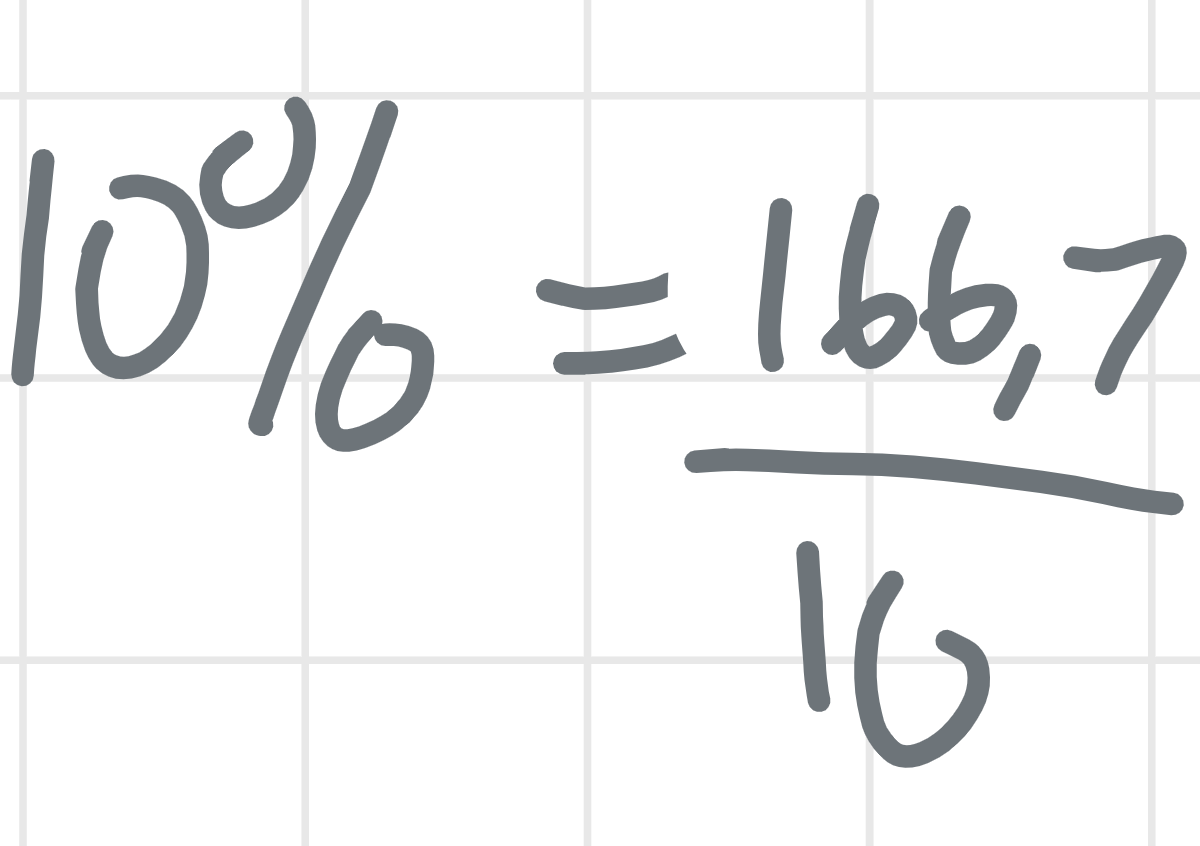 10% = 166,7
10